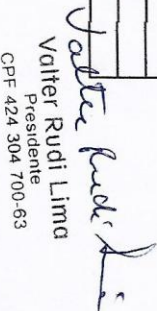 Valter Rudi Lima
Valter Rudi Lima
Presidente
CPF 424 304 700-63